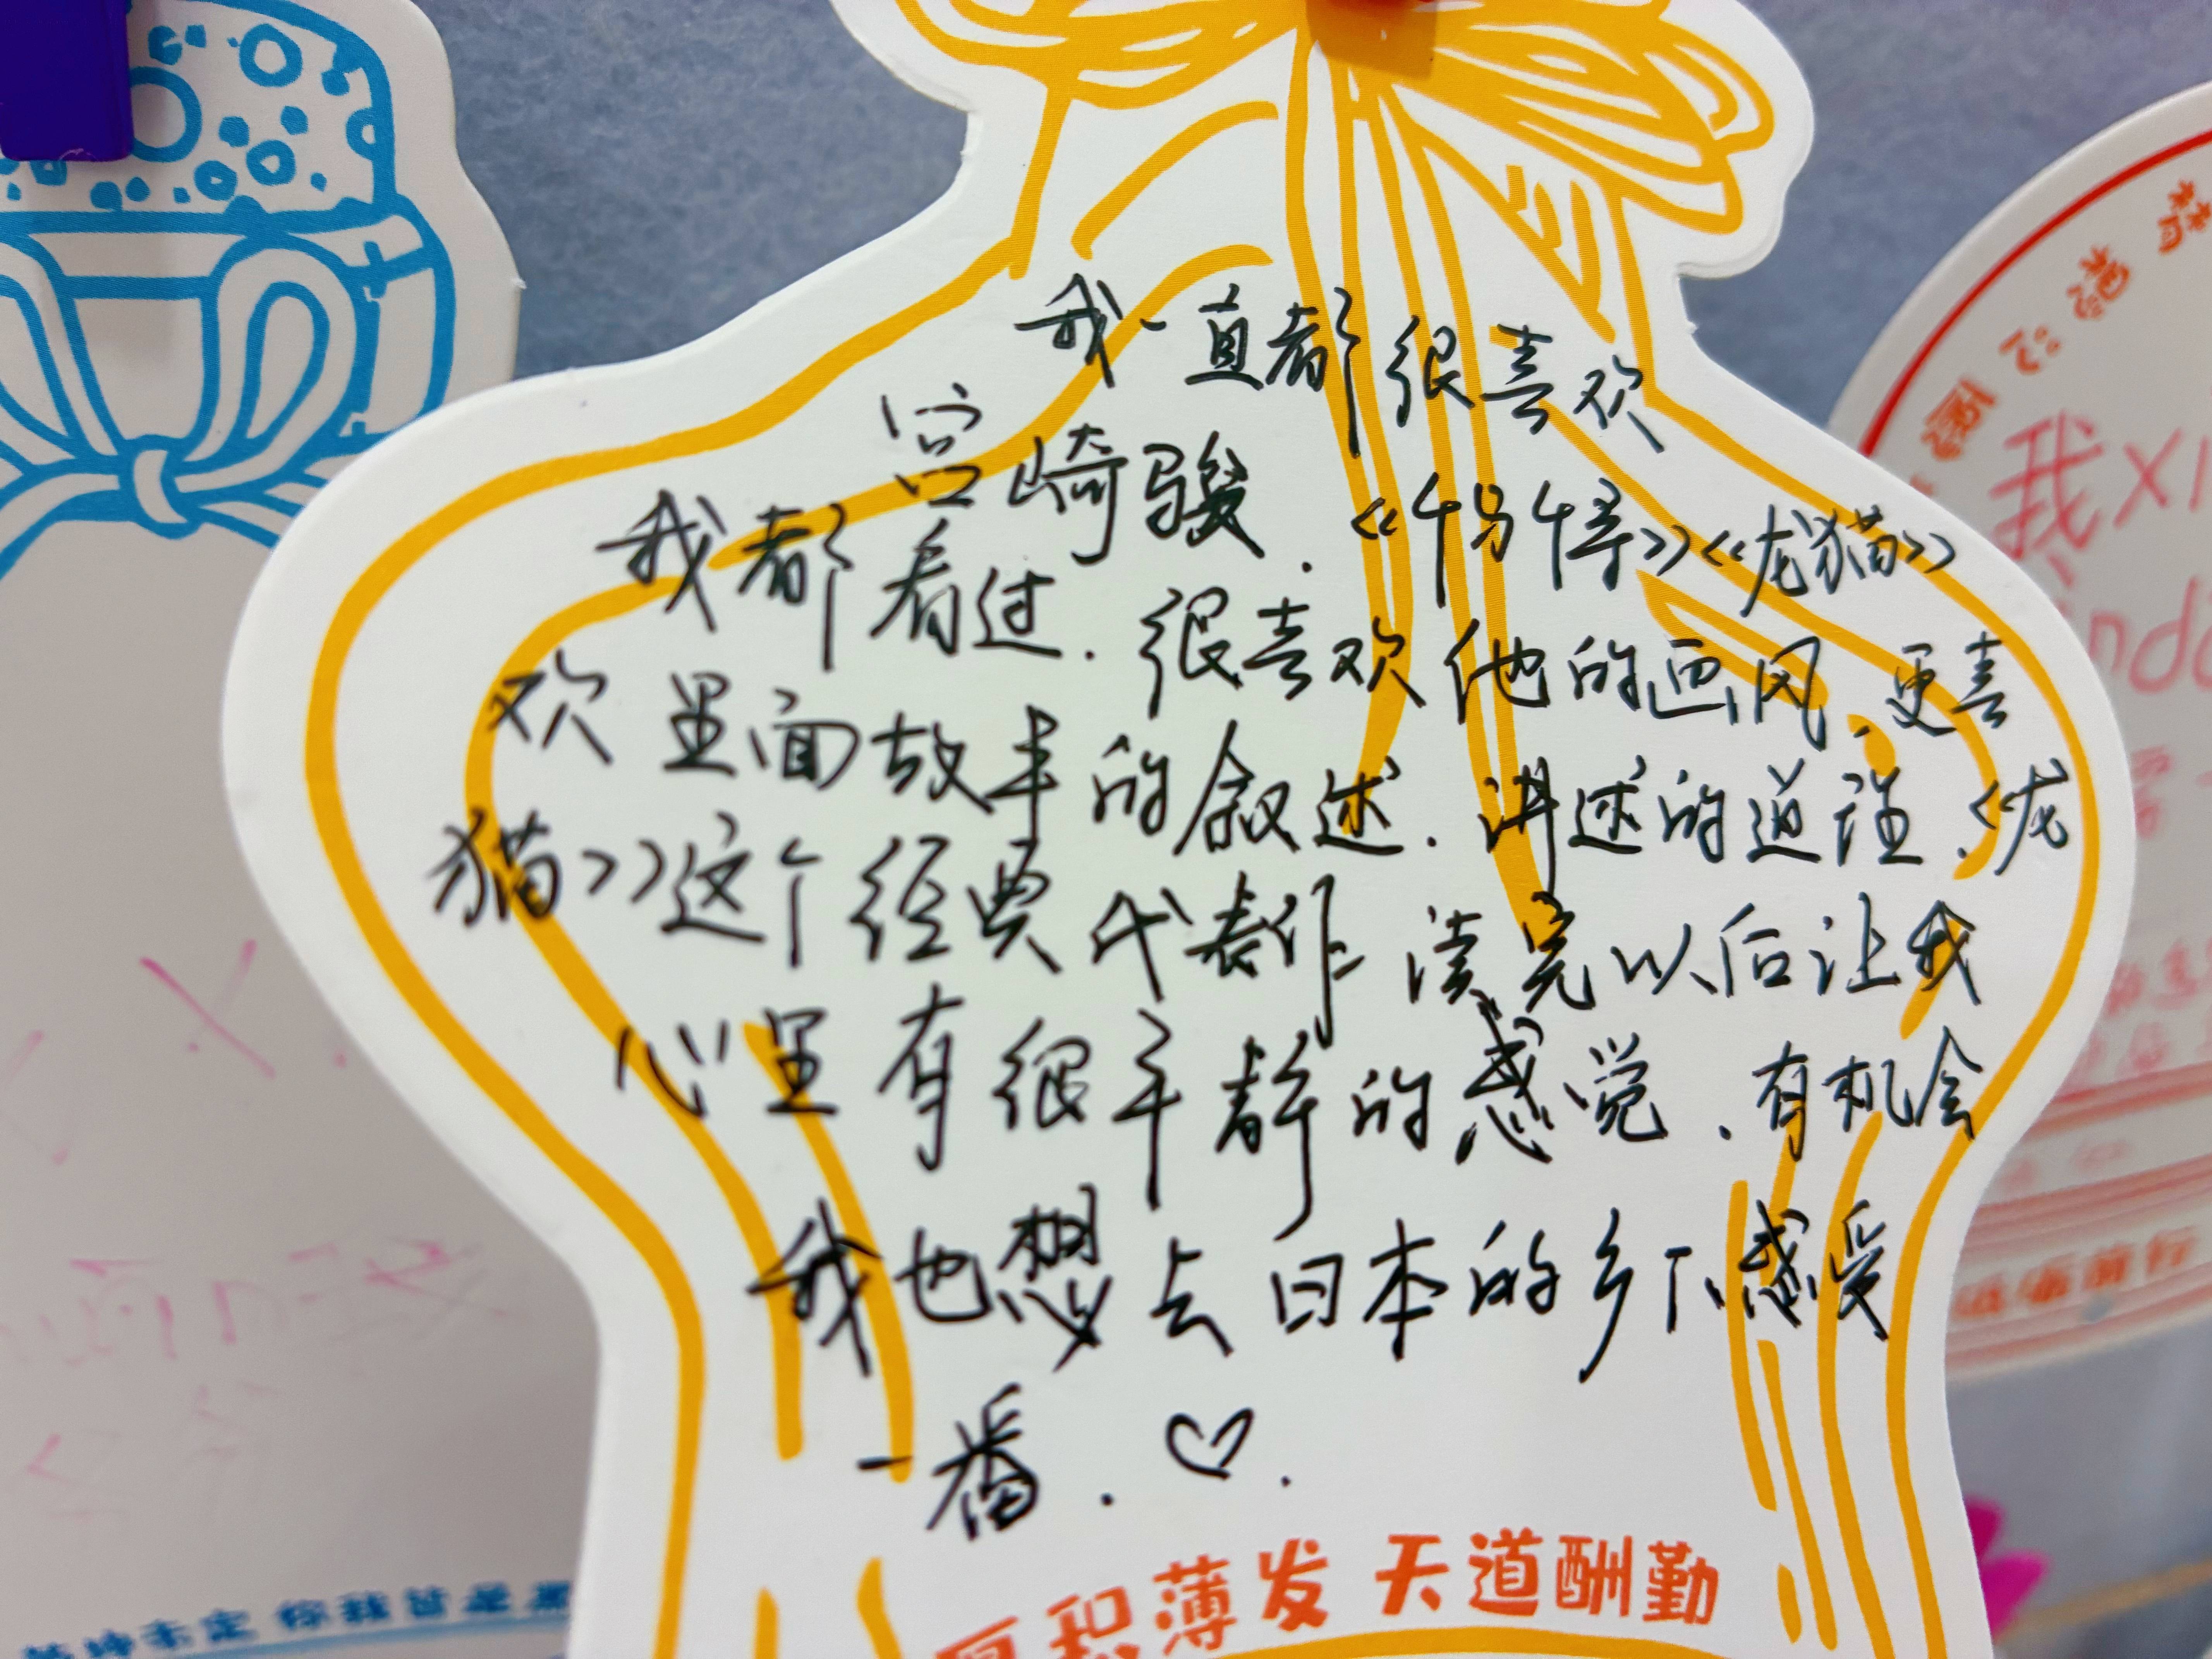 我一直都很喜欢
宫崎骏.《千与千寻》《龙猫》
我都看过.很喜欢他的画风.更喜
欢里面故事的叙述.讲述的道理.《龙
猫》这个经典代表作 读完以后让我
心里有很平静的感觉.有机会
我也想去日本的乡下感受
一番.♡.
厚积薄发 天道酬勤
乾坤未定 你我皆是黑
我xi